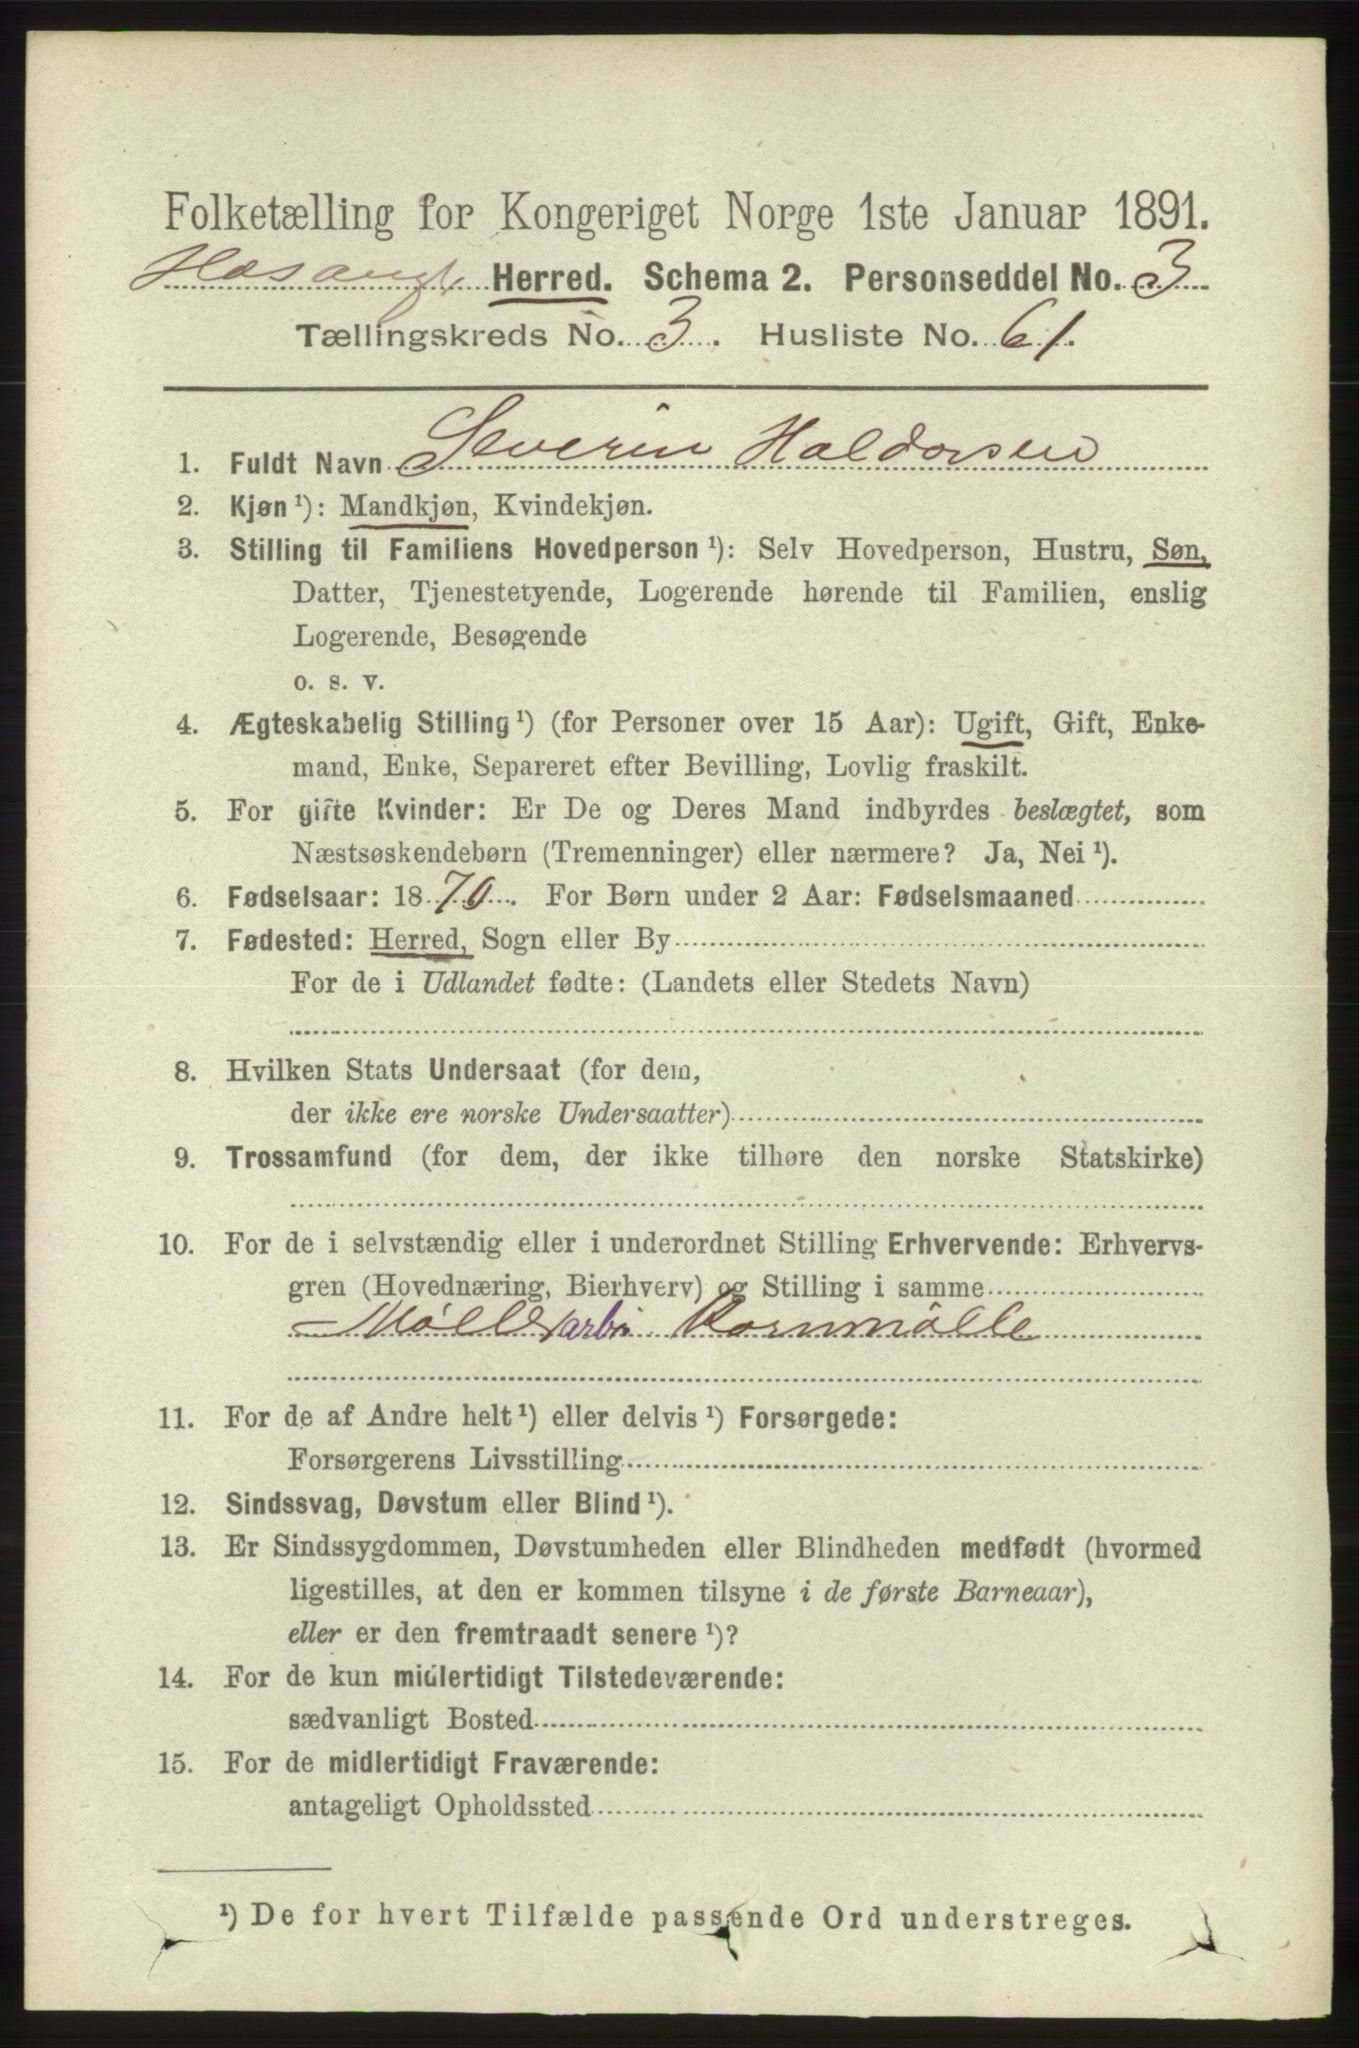 Folketælling for Kongeriget Norge 1ste Januar 1891.
Hosanger Herred. Schema 2. Personseddel No. 3
Tællingskreds No. 3. Husliste No. 61.
1. Fuldt Navn Severin Haldorsen
2. Kjøn ¹): Mandkjøn, Kvindekjøn.
3. Stilling til Familiens Hovedperson ¹): Selv Hovedperson, Hustru, Søn,
Datter, Tjenestetyende, Logerende hørende til Familien, enslig
Logerende, Besøgende
o. s. v.
4. Ægteskabelig Stilling ¹) (for Personer over 15 Aar): Ugift, Gift, Enke-
mand, Enke, Separeret efter Bevilling, Lovlig fraskilt.
5. For gifte Kvinder: Er De og Deres Mand indbyrdes beslægtet, som
Næstsøskendebørn (Tremenninger) eller nærmere? Ja, Nei ¹).
6. Fødselsaar: 1870. For Børn under 2 Aar: Fødselsmaaned
7. Fødested: Herred, Sogn eller By
For de i Udlandet fødte: (Landets eller Stedets Navn)
8. Hvilken Stats Undersaat (for dem,
der ikke ere norske Undersaatter)
9. Trossamfund (for dem, der ikke tilhøre den norske Statskirke)
10. For de i selvstændig eller i underordnet Stilling Erhvervende: Erhvervs-
gren (Hovednæring, Bierhverv) og Stilling i samme
Møller arb. Kornmølle
11. For de af Andre helt ¹) eller delvis ¹) Forsørgede:
Forsørgerens Livsstilling
12. Sindssvag, Døvstum eller Blind ¹).
13. Er Sindssygdommen, Døvstumheden eller Blindheden medfødt (hvormed
ligestilles, at den er kommen tilsyne i de første Barneaar),
eller er den fremtraadt senere ¹)?
14. For de kun midlertidigt Tilstedeværende:
sædvanligt Bosted
15. For de midlertidigt Fraværende:
antageligt Opholdssted
¹) De for hvert Tilfælde passende Ord understreges.